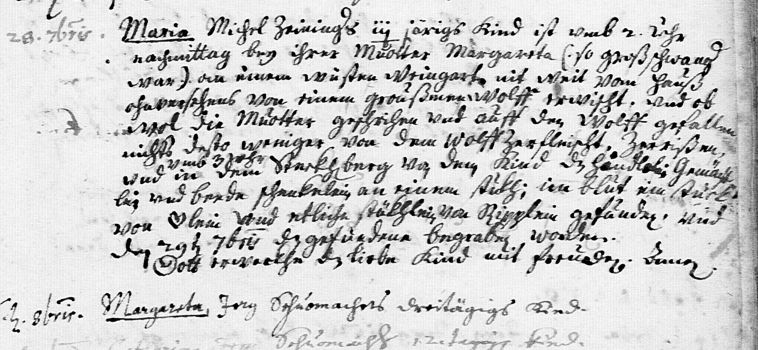 28. 7bris. Maria Michel Zeinings iij järigs Kind ist vmb 2. Uhr
nachmittag bey ihrer Muotter Margareta (: so groß schwang
war) an einem wüsten Weingart nit weit vom Hauß
ohnversehens von einem Wolff erwischt, vnd ob
wol die Muotter geschrihen vnd auff den Wolff gefallen
nichts desto weniger von dem Wolff zerfleischt, Zerrißen
vmb 3 Uhr
vnd in dem Sterkhlberg von dem Kind dz
lein vnd beede schenkelein an einem stükh, im blut ein stükh
von vnd etliche stükhlein von Ripplein gefunden, vnd
den 29t 7bris dz gefundene begraben worden.
Gott erwecke dz liebe Kind mit freuden. Amen.
8bris. Margareta, Jerg Schuomachers dreitägigs Kind.
Schuomachers Kind.